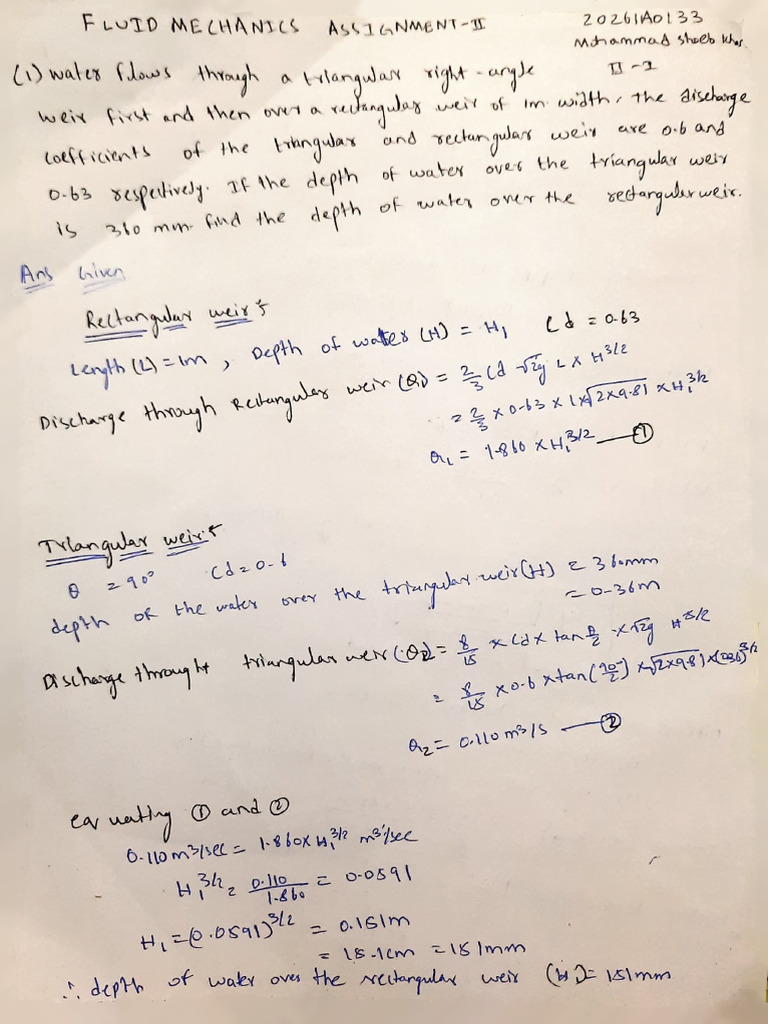 FLUID MECHANICS ASSIGNMENT-II
20261A0133
Mohammad Shoeb Khan
II-I
(1) water flows through a triangular right-angle
weir first and then over a rectangular weir of 1m width, the discharge
coefficients of the triangular and rectangular weir are 0.6 and
0.63 respectively. If the depth of water over the triangular weir
is 360 mm. find the depth of water over the rectangular weir.
Ans Given
Rectangular weir:
Length (L) = 1m, Depth of water (H) = H₁ Cd = 0.63
Discharge through Rectangular weir (Q₁) = 2/3 Cd √2g L x H^3/2
= 2/3 x 0.63 x 1 x √2x9.81 x H₁^3/2
Q₁ = 1.860 x H₁^3/2 —①
Triangular weir:
θ = 90° Cd = 0.6
depth of the water over the triangular weir (H) = 360mm
= 0.36m
Discharge throught triangular weir (Q₂) = 8/15 x Cd x tan θ/2 x √2g H^5/2
= 8/15 x 0.6 x tan(90/2) x √2x9.81 x (0.36)^5/2
Q₂ = 0.110 m³/s —②
equating ① and ②
0.110 m³/sec = 1.860 x H₁^3/2 m³/sec
H₁^3/2 = 0.110/1.860 = 0.0591
H₁ = (0.0591)^3/2 = 0.151m
= 15.1cm = 151mm
∴ depth of water over the rectangular weir (H₁) = 151mm